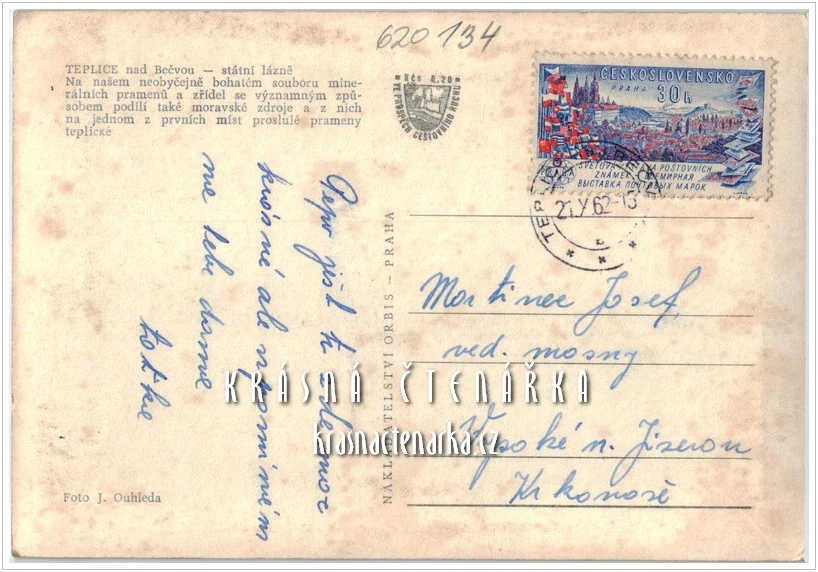 620 134
TEPLICE nad Bečvou — státní lázně
Na našem neobyčejně bohatém souboru mine-
rálních pramenů a zřídel se významným způ-
sobem podílí také moravské zdroje a z nich
na jednom z prvních míst proslulé prameny
teplické
Kčs 0.20
VE PROSPĚCH CESTOVNÍHO RUCHU
ČESKOSLOVENSKO
PRAHA 30h
SVĚTOVÁ POŠTOVNÍCH
ZNÁMEK
ВСЕМИРНАЯ
ВЫСТАВКА ПОЧТОВЫХ МАРОК
21.V.62-15
Pepo je
krásné ale
na tebe doma
NAKLADATELSTVÍ ORBIS — PRAHA
Martinec Josef,
ved.
Vysoké n. Jizerou
Krkonoše
KRÁSNÁ ČTENÁŘKA
krasnactenarka.cz
Foto J. Ouhleda